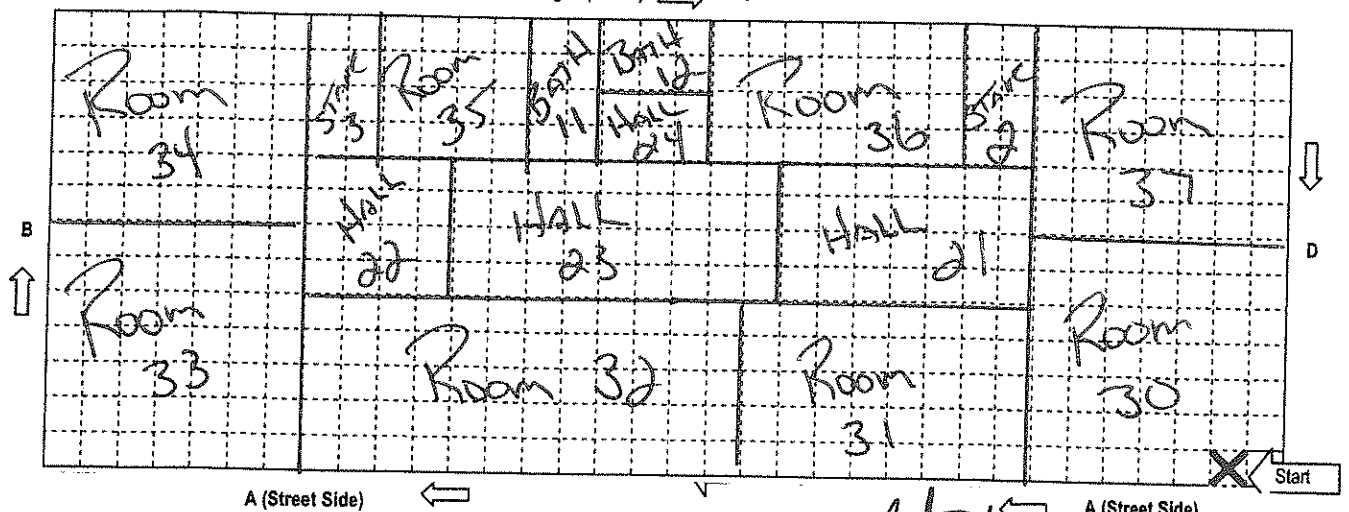 Room
34
STAIR
3
Room
35
BATH
11
BATH
12
HALL
24
Room
36
STAIR
2
Room
37
B
HALL
22
HALL
23
HALL
21
D
Room
33
Room 32
Room
31
Room
30
Start
A (Street Side)
A (Street Side)